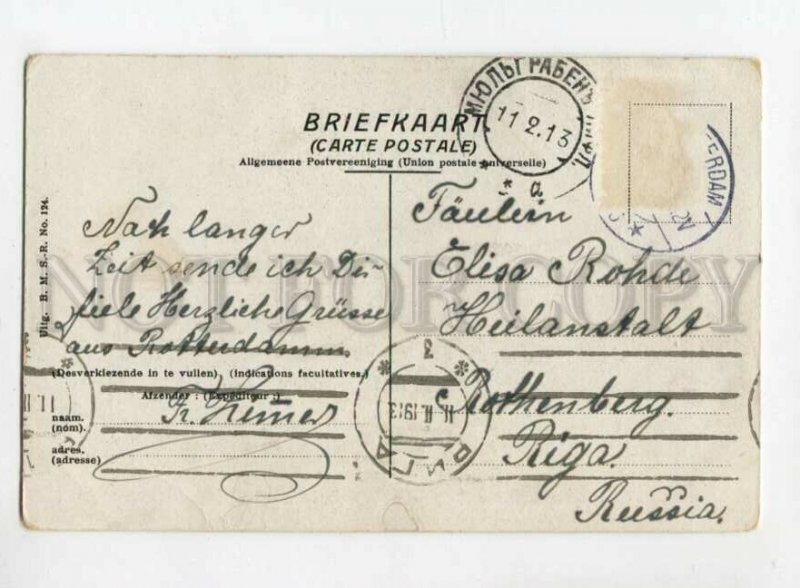 BRIEFKAART
(CARTE POSTALE)
Allgemeene Postvereeniging (Union postale universelle)
МЮЛЬГРАБЕНЪ
11 2.13
* a *
ERDAM
Uitg. B. M. S.-R. No. 124.
Nach langer
Zeit sende ich Dir
fiele Herzliche Grüsse
aus Rotterdamm
(Desverkiezende in te vullen). (indications facultatives.)
Afzender: (Expéditeur:)
naam.
(nom).
adres.
(adresse)
Fäulein
Elisa Rohde
Heilanstalt
Rothenberg.
Riga.
Russia.
11.II.1913
РИГА
NOT FOR COPY